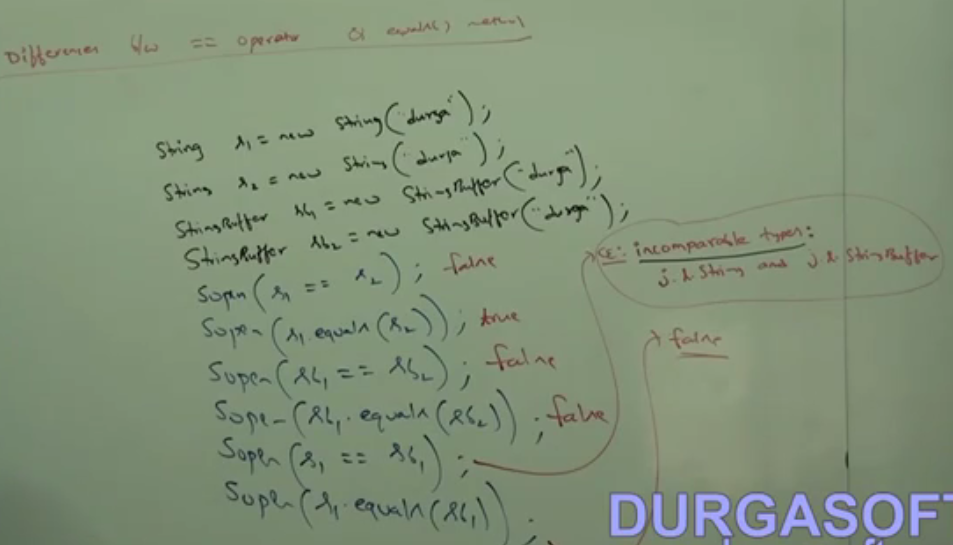 Differences b/w == operator & equals() method
String s1 = new String("durga");
String s2 = new String("durga");
StringBuffer sb1 = new StringBuffer("durga");
StringBuffer sb2 = new StringBuffer("durga");
Sopln(s1 == s2); false
Sopln(s1.equals(s2)); true
Sopln(sb1 == sb2); false
Sopln(sb1.equals(sb2)); false
Sopln(s1 == sb1);
CE: incomparable types:
j.l.String and j.l.StringBuffer
Sopln(s1.equals(sb1));
false
DURGASOFT